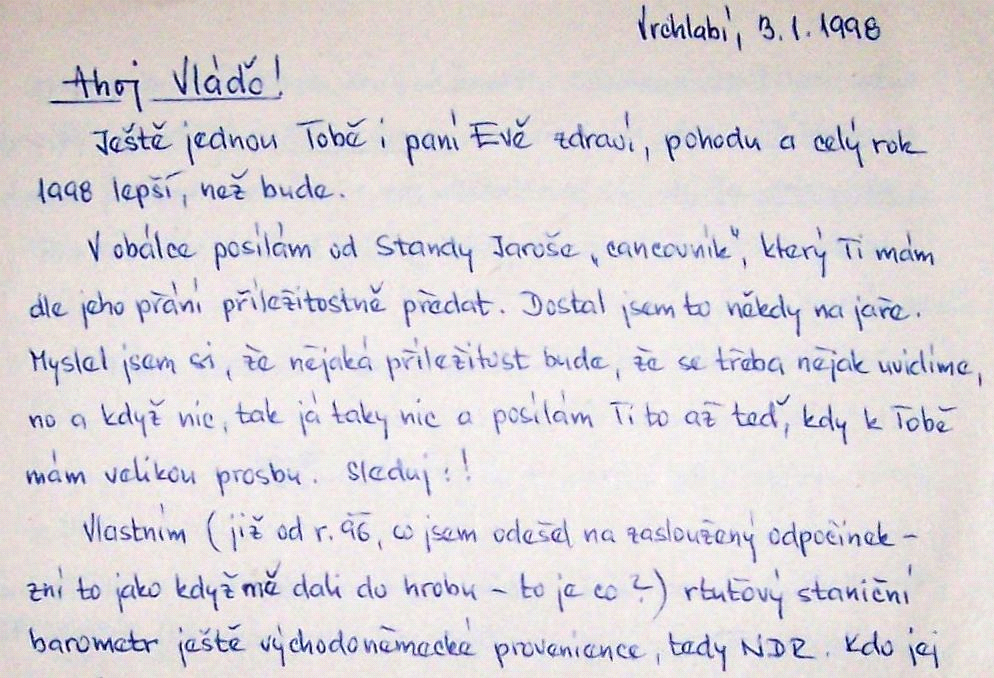 Vrchlabí, 3.1.1998
Ahoj Vláďo!
Ještě jednou Tobě i paní Evě zdraví, pohodu a celý rok
1998 lepší, než bude.
V obálce posílám od Standy Jaroše „cancounik“, který Ti mám
dle jeho přání příležitostně předat. Dostal jsem to někdy na jaře.
Myslel jsem si, že nějaká příležitost bude, že se třeba nějak uvidíme,
no a když nic, tak já taky nic a posílám Ti to až teď, kdy k Tobě
mám velikou prosbu. Sleduj:!
Vlastním (již od r. 96, co jsem odešel na zasloužený odpočinek –
zní to jako když mě dali do hrobu – to je co?) rtuťový staniční
barometr ještě východoněmecké provenience, tedy NDR. Kdo jej